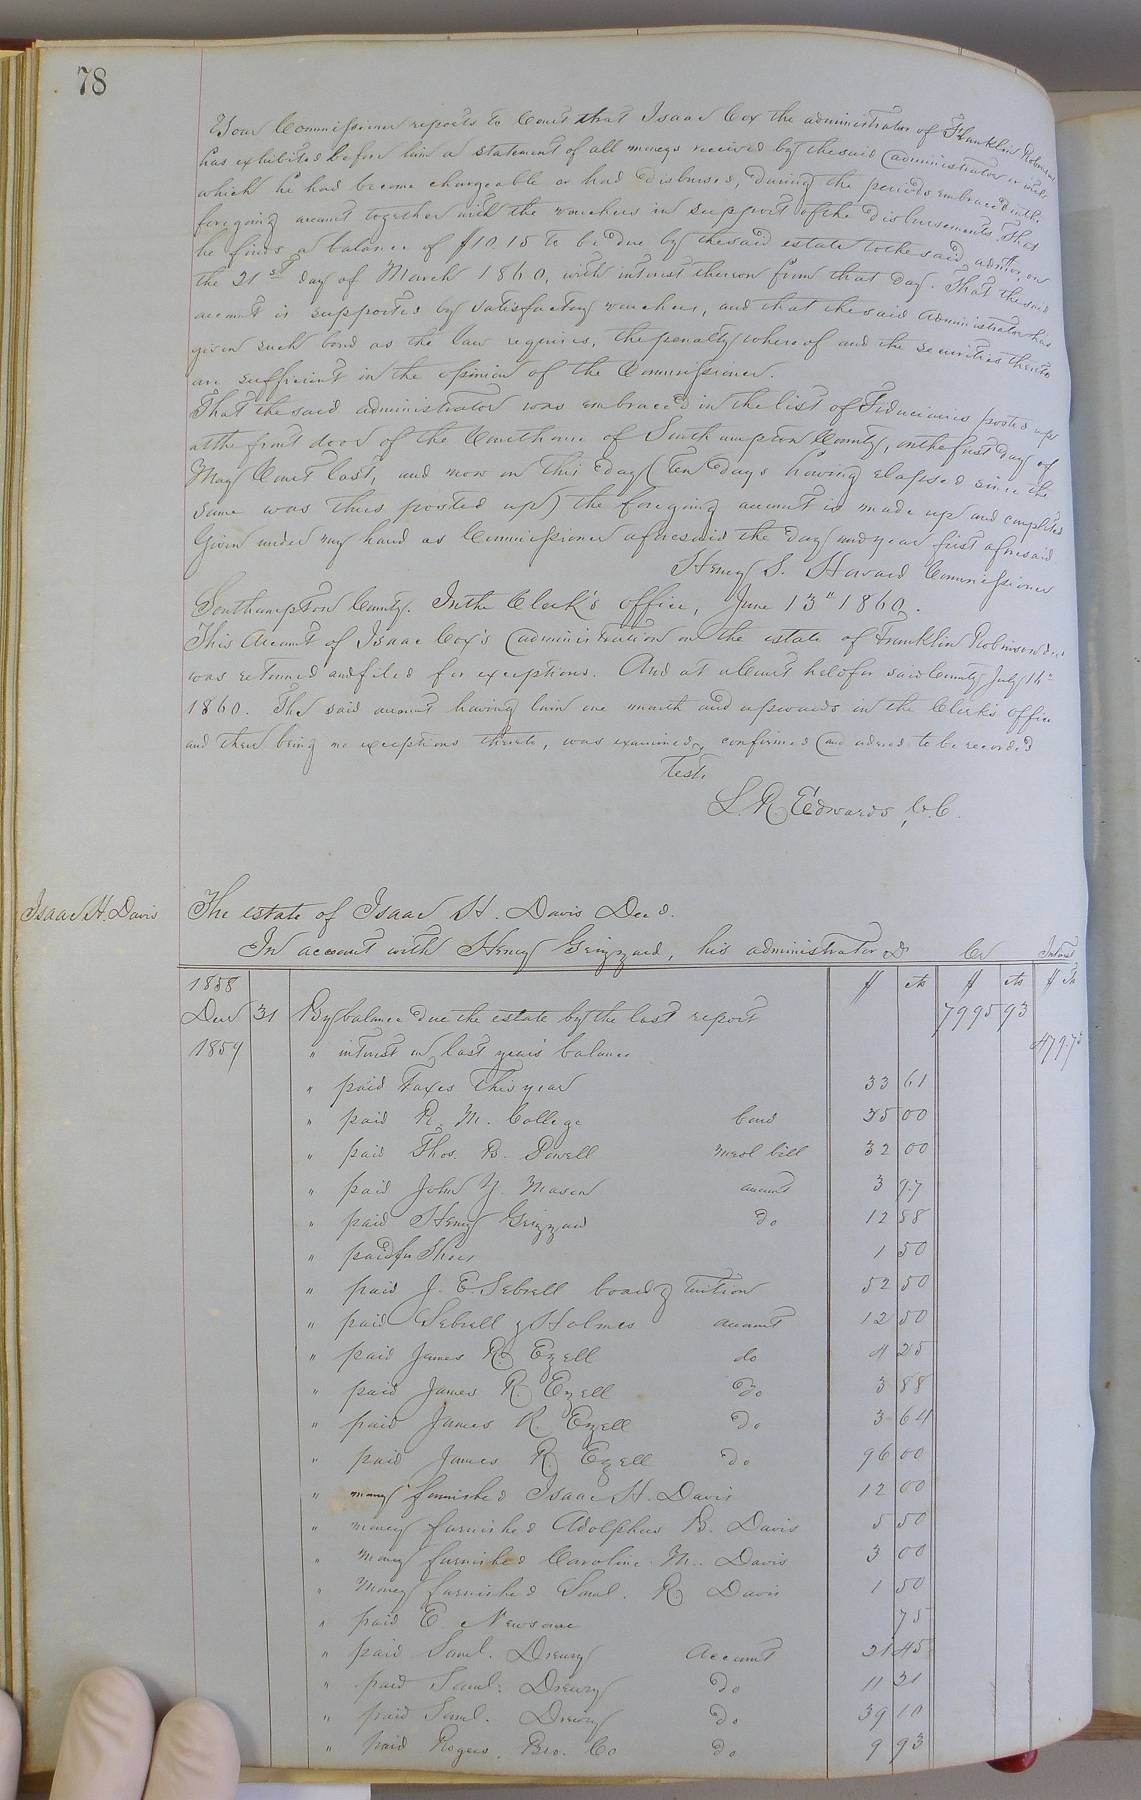 78
Your Commissioner reports to Court that Isaac Cox the administrator of Franklin Robinson
has exhibited before him a statement of all moneys received by the said administrator or with
which he had become chargeable or had disbursed, during the periods embraced in the
foregoing account together with the vouchers in support of the disbursements. That
he finds a balance of $10.15 to be due by the said estate to the said admtor, on
the 31st day of March 1860, with interest thereon from that day. That the said
account is supported by satisfactory vouchers, and that the said administrator has
given such bond as the law requires, the penalty whereof and the securities thereto
are sufficient in the opinion of the Commissioner.
That the said administrator was embraced in the list of Fiduciaries posted up
at the front door of the Courthouse of Southampton County, on the first day of
May Court last, and now on this day (ten days having elapsed since the
same was thus posted up) the foregoing account is made up and completed
Given under my hand as Commissioner aforesaid the day and year first aforesaid
Henry S. Howard Commissioner
Southampton County. In the Clerk's office, June 13" 1860.
This Account of Isaac Cox's administration on the estate of Franklin Robinson dec
was returned and filed for exceptions. And at a Court held for said County July 16"
1860. The said account having lain one month and upwards in the Clerk's office
and there being no exceptions thereto, was examined, confirmed and ordered to be recorded
Teste
L. R. Edwards, C.C.
Isaac H. Davis
The estate of Isaac H. Davis Decd.
In account with Henry Grizzard, his administrator Dr Cr Interest
1858 $ cts $ cts $ cts
Dec 31 By balance due the estate by the last report 7995 93
1859 " interest on last years balance 479.75
" paid Taxes this year 33 61
" paid R. M. College bond 35 00
" paid Thos. B. Powell medl bill 32 00
" paid John Y. Mason account 3 97
" paid Henry Grizzard do 12 88
" paid for Shoes 1 50
" paid J. E. Sebrell board & tuition 52 50
" paid Sebrell & Holmes account 12 50
" paid James R. Ezell do 4 25
" paid James R. Ezell Do 3 88
" paid James R. Ezell Do 3 64
" paid James R. Ezell Do 96 00
" money furnished Isaac H. Davis 12 00
" money furnished Adolphus B. Davis 5 50
" Money furnished Caroline M. Davis 3 00
" Money furnished Saml. R Davis 1 50
" paid E. Newsome 75
" paid Saml. Drewry Account 21 45
" paid Saml. Drewry Do 11 31
" paid Saml. Drewry Do 39 10
" paid Rogers, Bro. Co Do 9 93